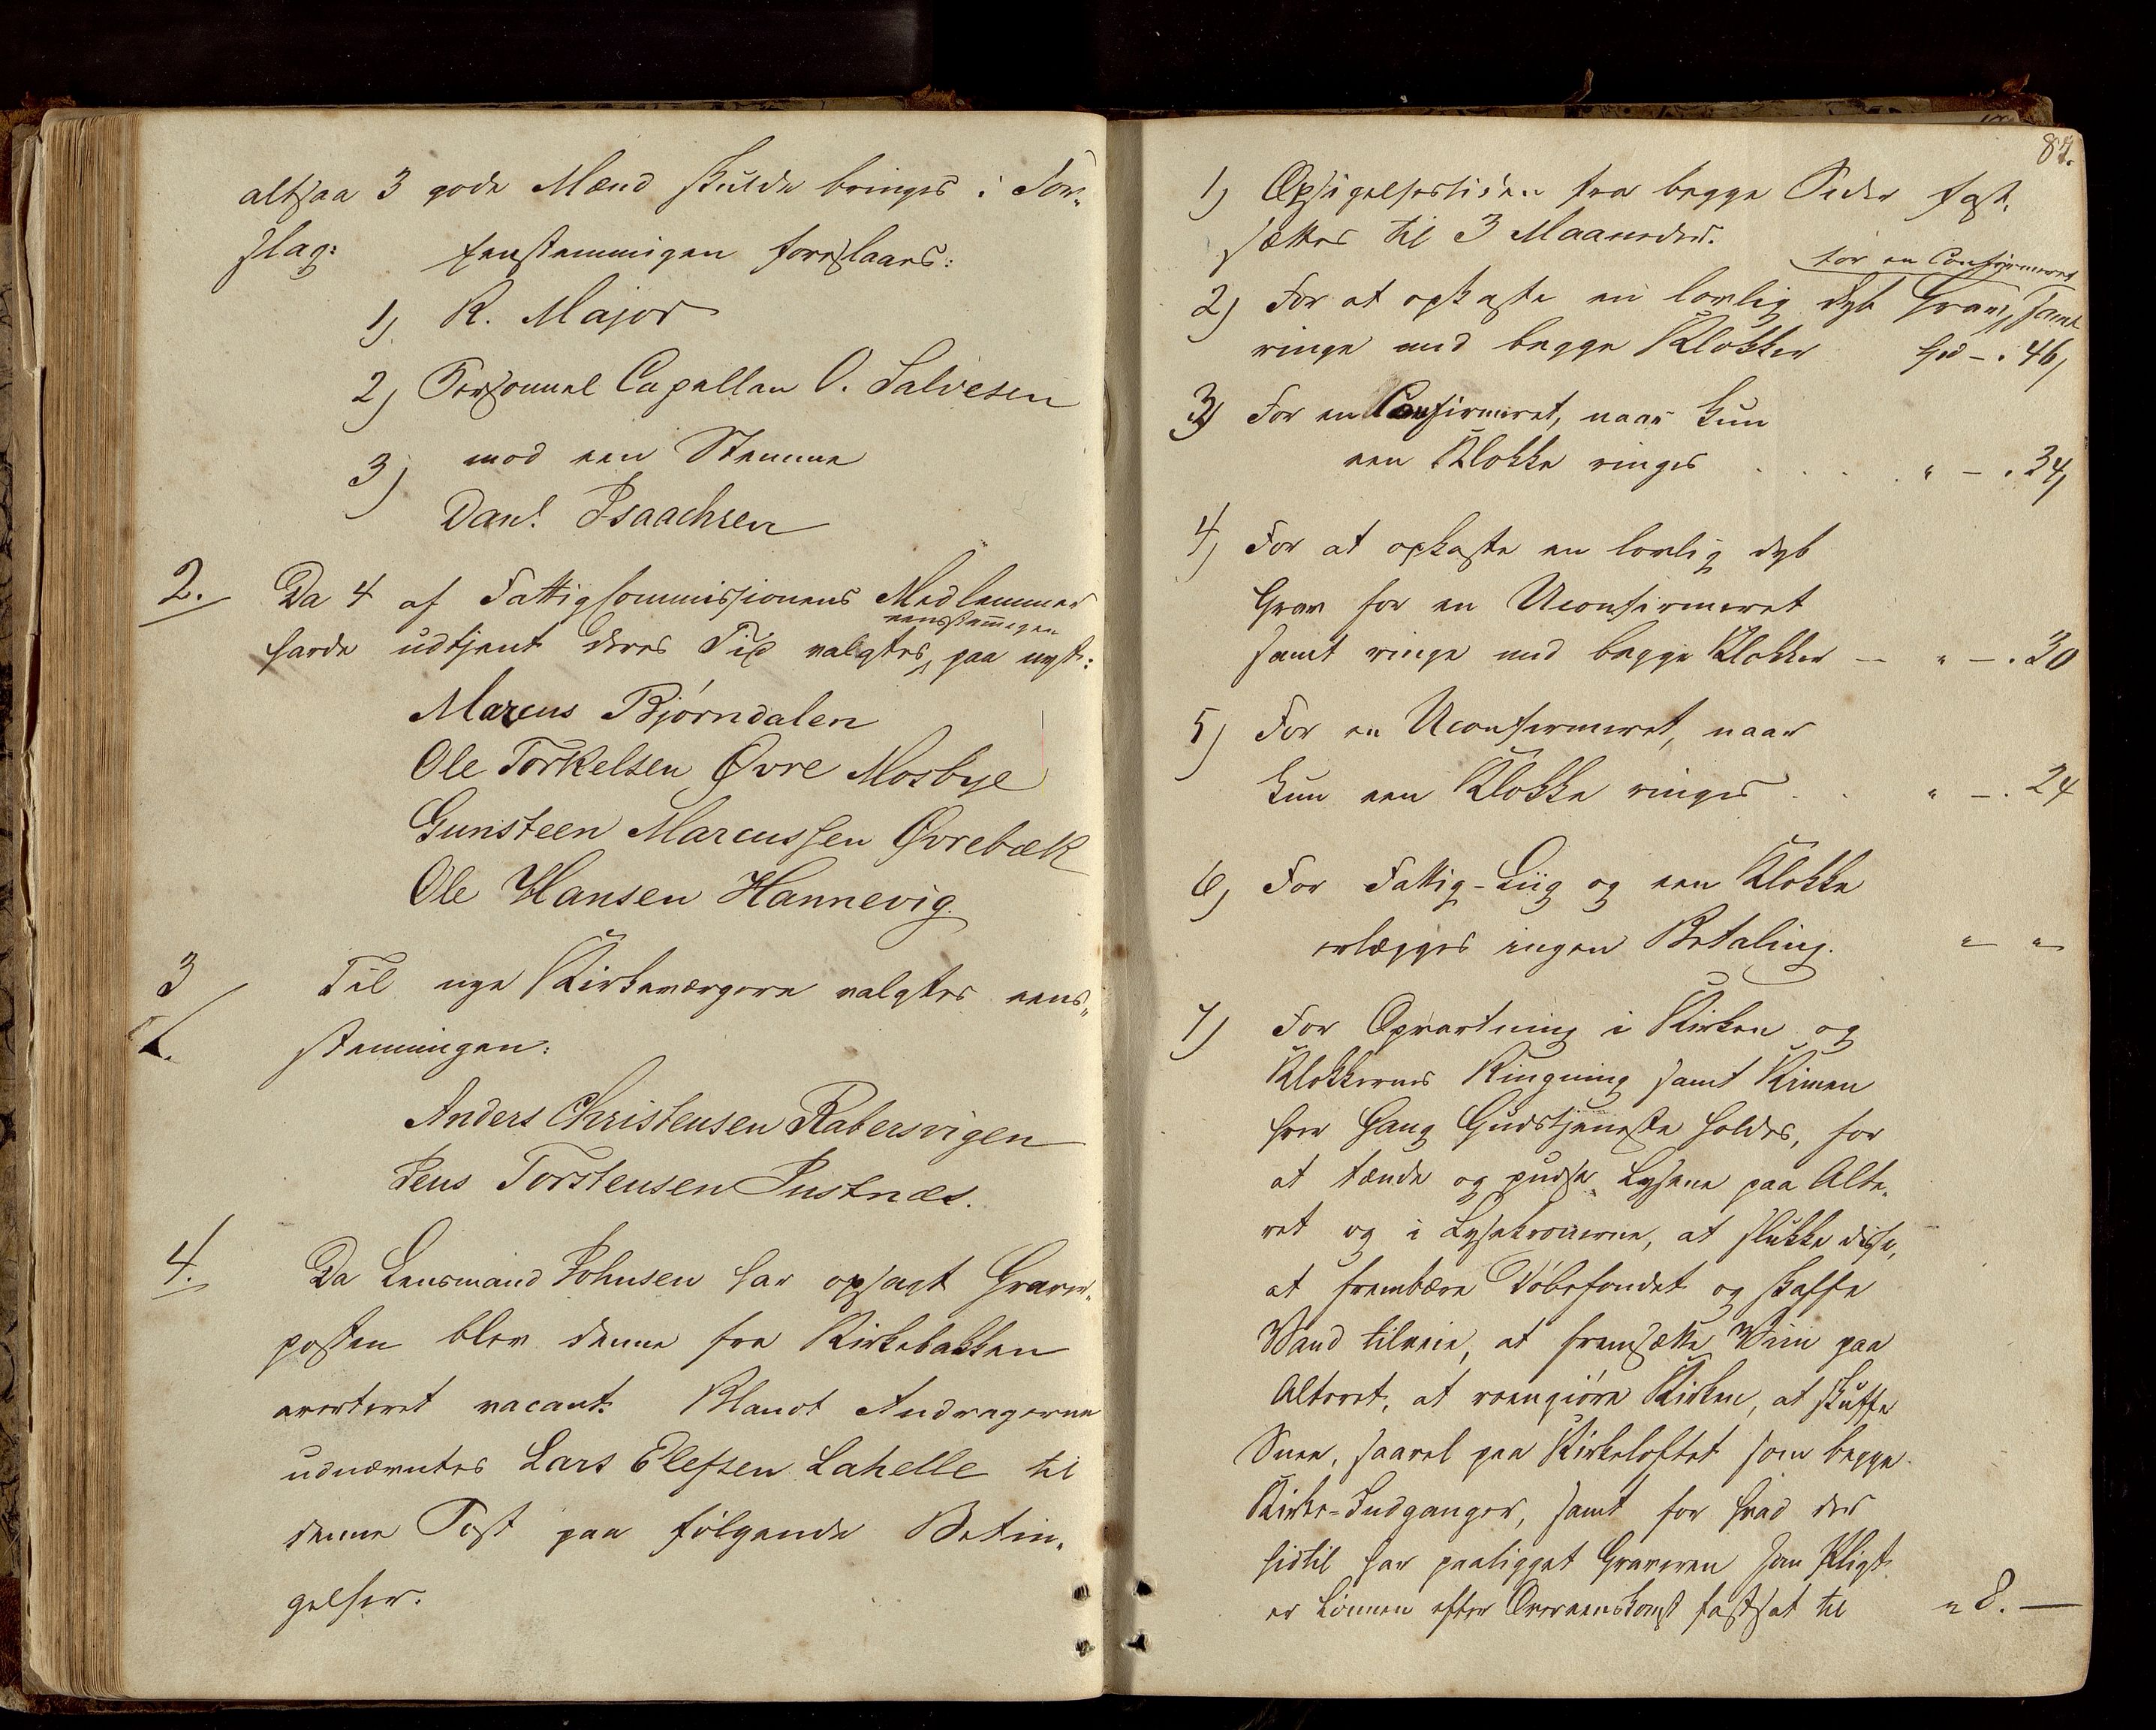 altsaa 3 gode Mænd skulde bringes i For-
slag: Eenstemmigen foreslaaes:
1) R. Major
2) Personnel Capellan O. Salvesen
3) mod een Stemme
Danl. Isaachsen
2. Da 4 af Fattigkommissionens Medlemmer
eensstemmigen
havde udtjent deres Tid valgtes, paa nyt:
Marcus Bjørndalen
Ole Torkelsen Øvre Mosbye
Gunsteen Marcussen Øvrebæk
Ole Hansen Hannevig.
3 Til nye Kirkeværgere valgtes eens-
stemmigen:
Anders Christensen Rabersvigen
Jens Torstensen Justnæs.
4. Da Lensmand Johnsen har opsagt Graver-
posten blev denne fra Kirkebakken
averteret vacant. Blandt Andragerne
udnævntes Lars Elefsen Lahelle til
denne Post paa følgende Betin-
gelser.
87.
1) Opsigelsestiden fra begge Sider fast-
sættes til 3 Maaneder.
for en Confirmeret
2) For at opkaste en lovlig dyb Grav, samt
ringe med begge Klokker - . 46,
3) For en Confirmeret, naar kun
een Klokke ringes . . . . " - . 34,
4) For at opkaste en lovlig dyb
Grav for en Uconfirmeret
samt ringe med begge Klokker - " - . 30
5) For en Uconfirmeret, naar
kun een Klokke ringes . . " - . 24
6) For Fattig-Liig og een Klokke
erlægges ingen Betaling. " "
7) For Opvartning i Kirken og
Klokkernes Ringning samt Kimen
hver Gang Gudstjeneste holdes, for
at tænde og pudse Lysene paa Alte-
ret og i Lysekronerne, at slukke disse,
at frembære Døbefondet og skaffe
Vand tilveie, at fremsætte Viin paa
Alteret, at reengiøre Kirken, at skuffe
Snee, saavel paa Kirkeloftet som begge
Kirke-Indganger, samt for hvad der
hidtil har paaligget Graveren som Pligt
er Lønnen efter Overeenskomst fastsat til " 8. -